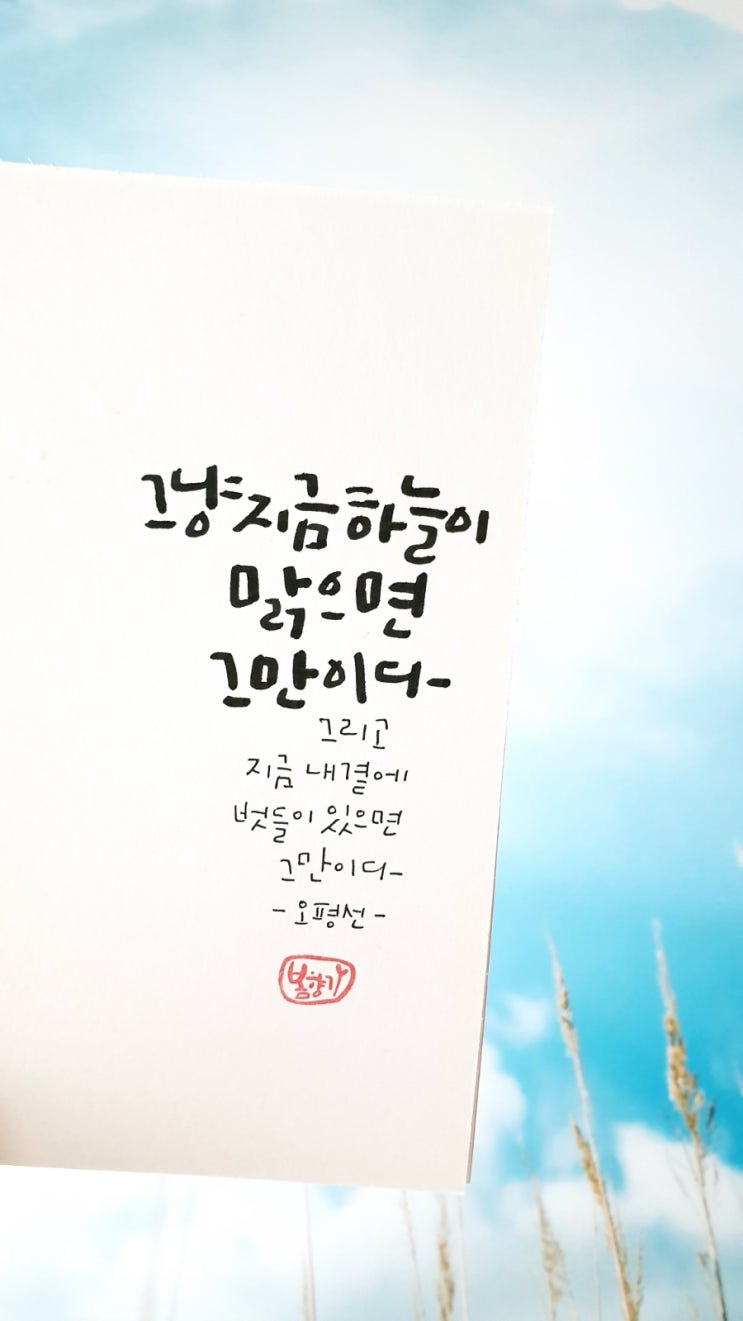 그냥 지금 하늘이
맑으면
그만이다-
그리고
지금 내곁에
벗들이 있으면
그만이다-
- 오평선 -
봄향기